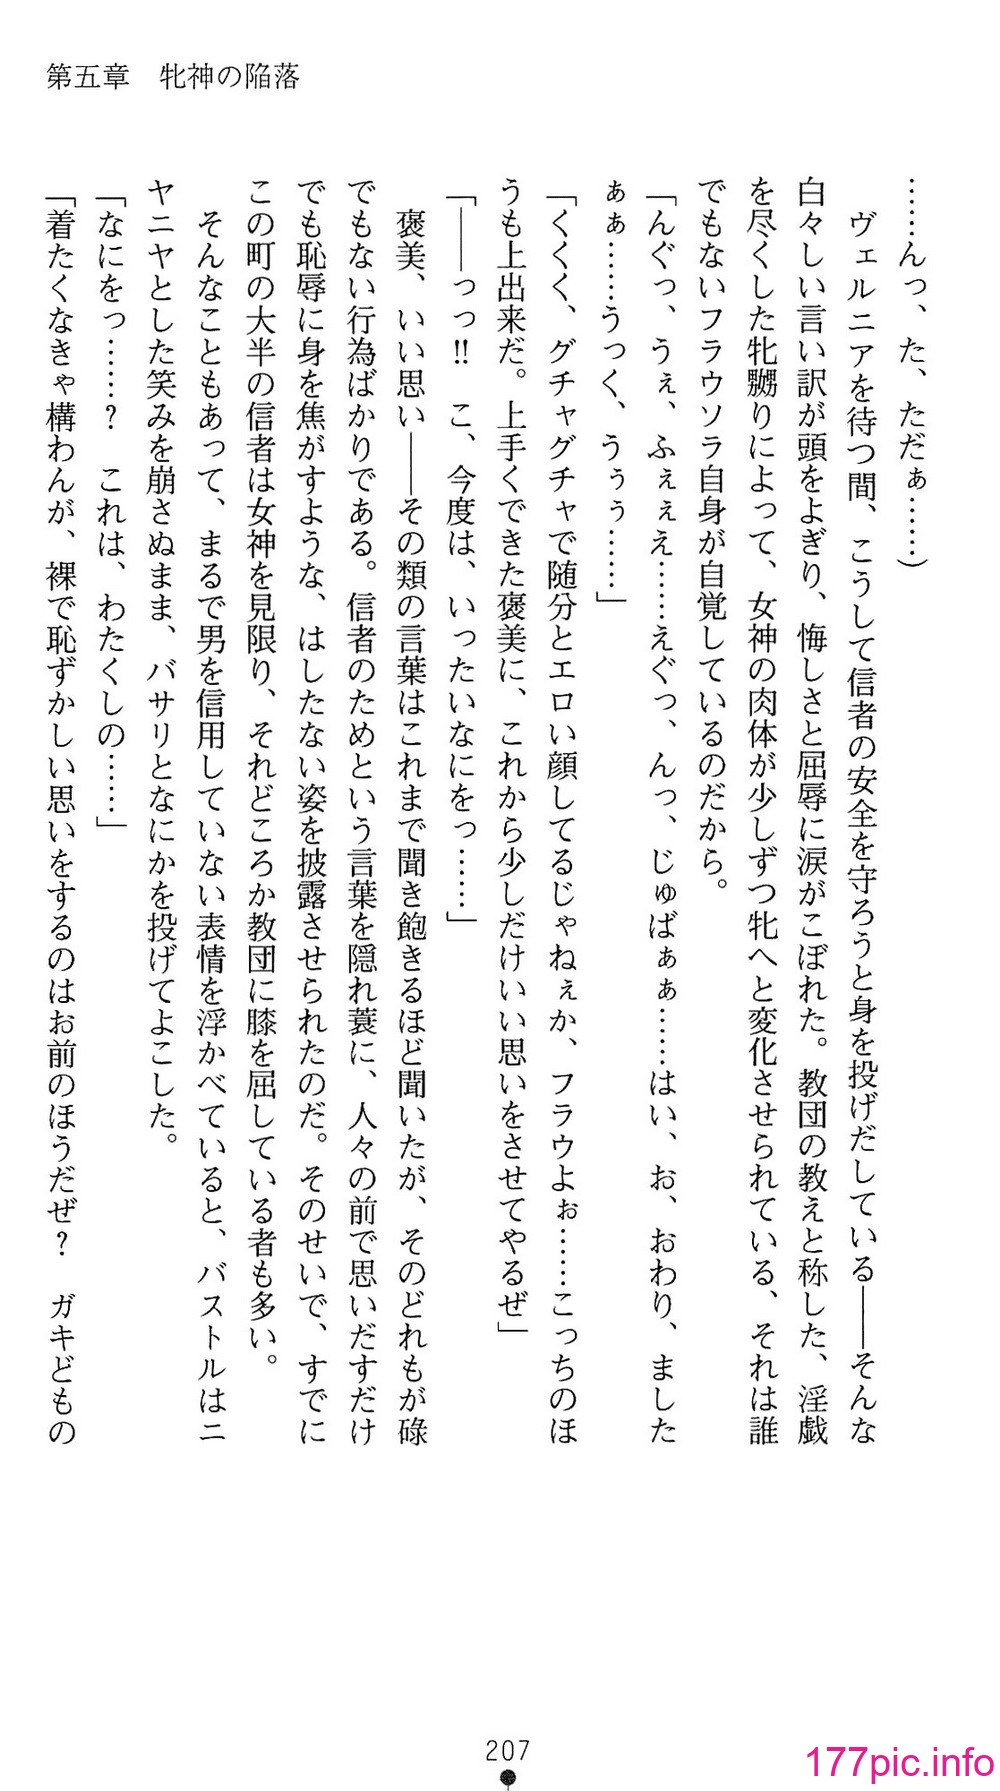 第五章　牝神の陥落
……んっ、た、ただぁ……）
　ヴェルニアを待つ間、こうして信者の安全を守ろうと身を投げだしている――そんな
白々しい言い訳が頭をよぎり、悔しさと屈辱に涙がこぼれた。教団の教えと称した、淫戯
を尽くした牝嬲りによって、女神の肉体が少しずつ牝へと変化させられている、それは誰
でもないフラウソラ自身が自覚しているのだから。
「んぐっ、うぇ、ふぇぇえ……えぐっ、んっ、じゅばぁぁ……はい、お、おわり、ました
ぁぁ……うっく、うぅぅ……」
「くくく、グチャグチャで随分とエロい顔してるじゃねぇか、フラウよぉ……こっちのほ
うも上出来だ。上手くできた褒美に、これから少しだけいい思いをさせてやるぜ」
「――っっ‼　こ、今度は、いったいなにをっ……」
　褒美、いい思い――その類の言葉はこれまで聞き飽きるほど聞いたが、そのどれもが碌
でもない行為ばかりである。信者のためという言葉を隠れ蓑に、人々の前で思いだすだけ
でも恥辱に身を焦がすような、はしたない姿を披露させられたのだ。そのせいで、すでに
この町の大半の信者は女神を見限り、それどころか教団に膝を屈している者も多い。
　そんなこともあって、まるで男を信用していない表情を浮かべていると、バストルはニ
ヤニヤとした笑みを崩さぬまま、バサリとなにかを投げてよこした。
「なにをっ……？　これは、わたくしの……」
「着たくなきゃ構わんが、裸で恥ずかしい思いをするのはお前のほうだぜ？　ガキどもの
207
177pic.info